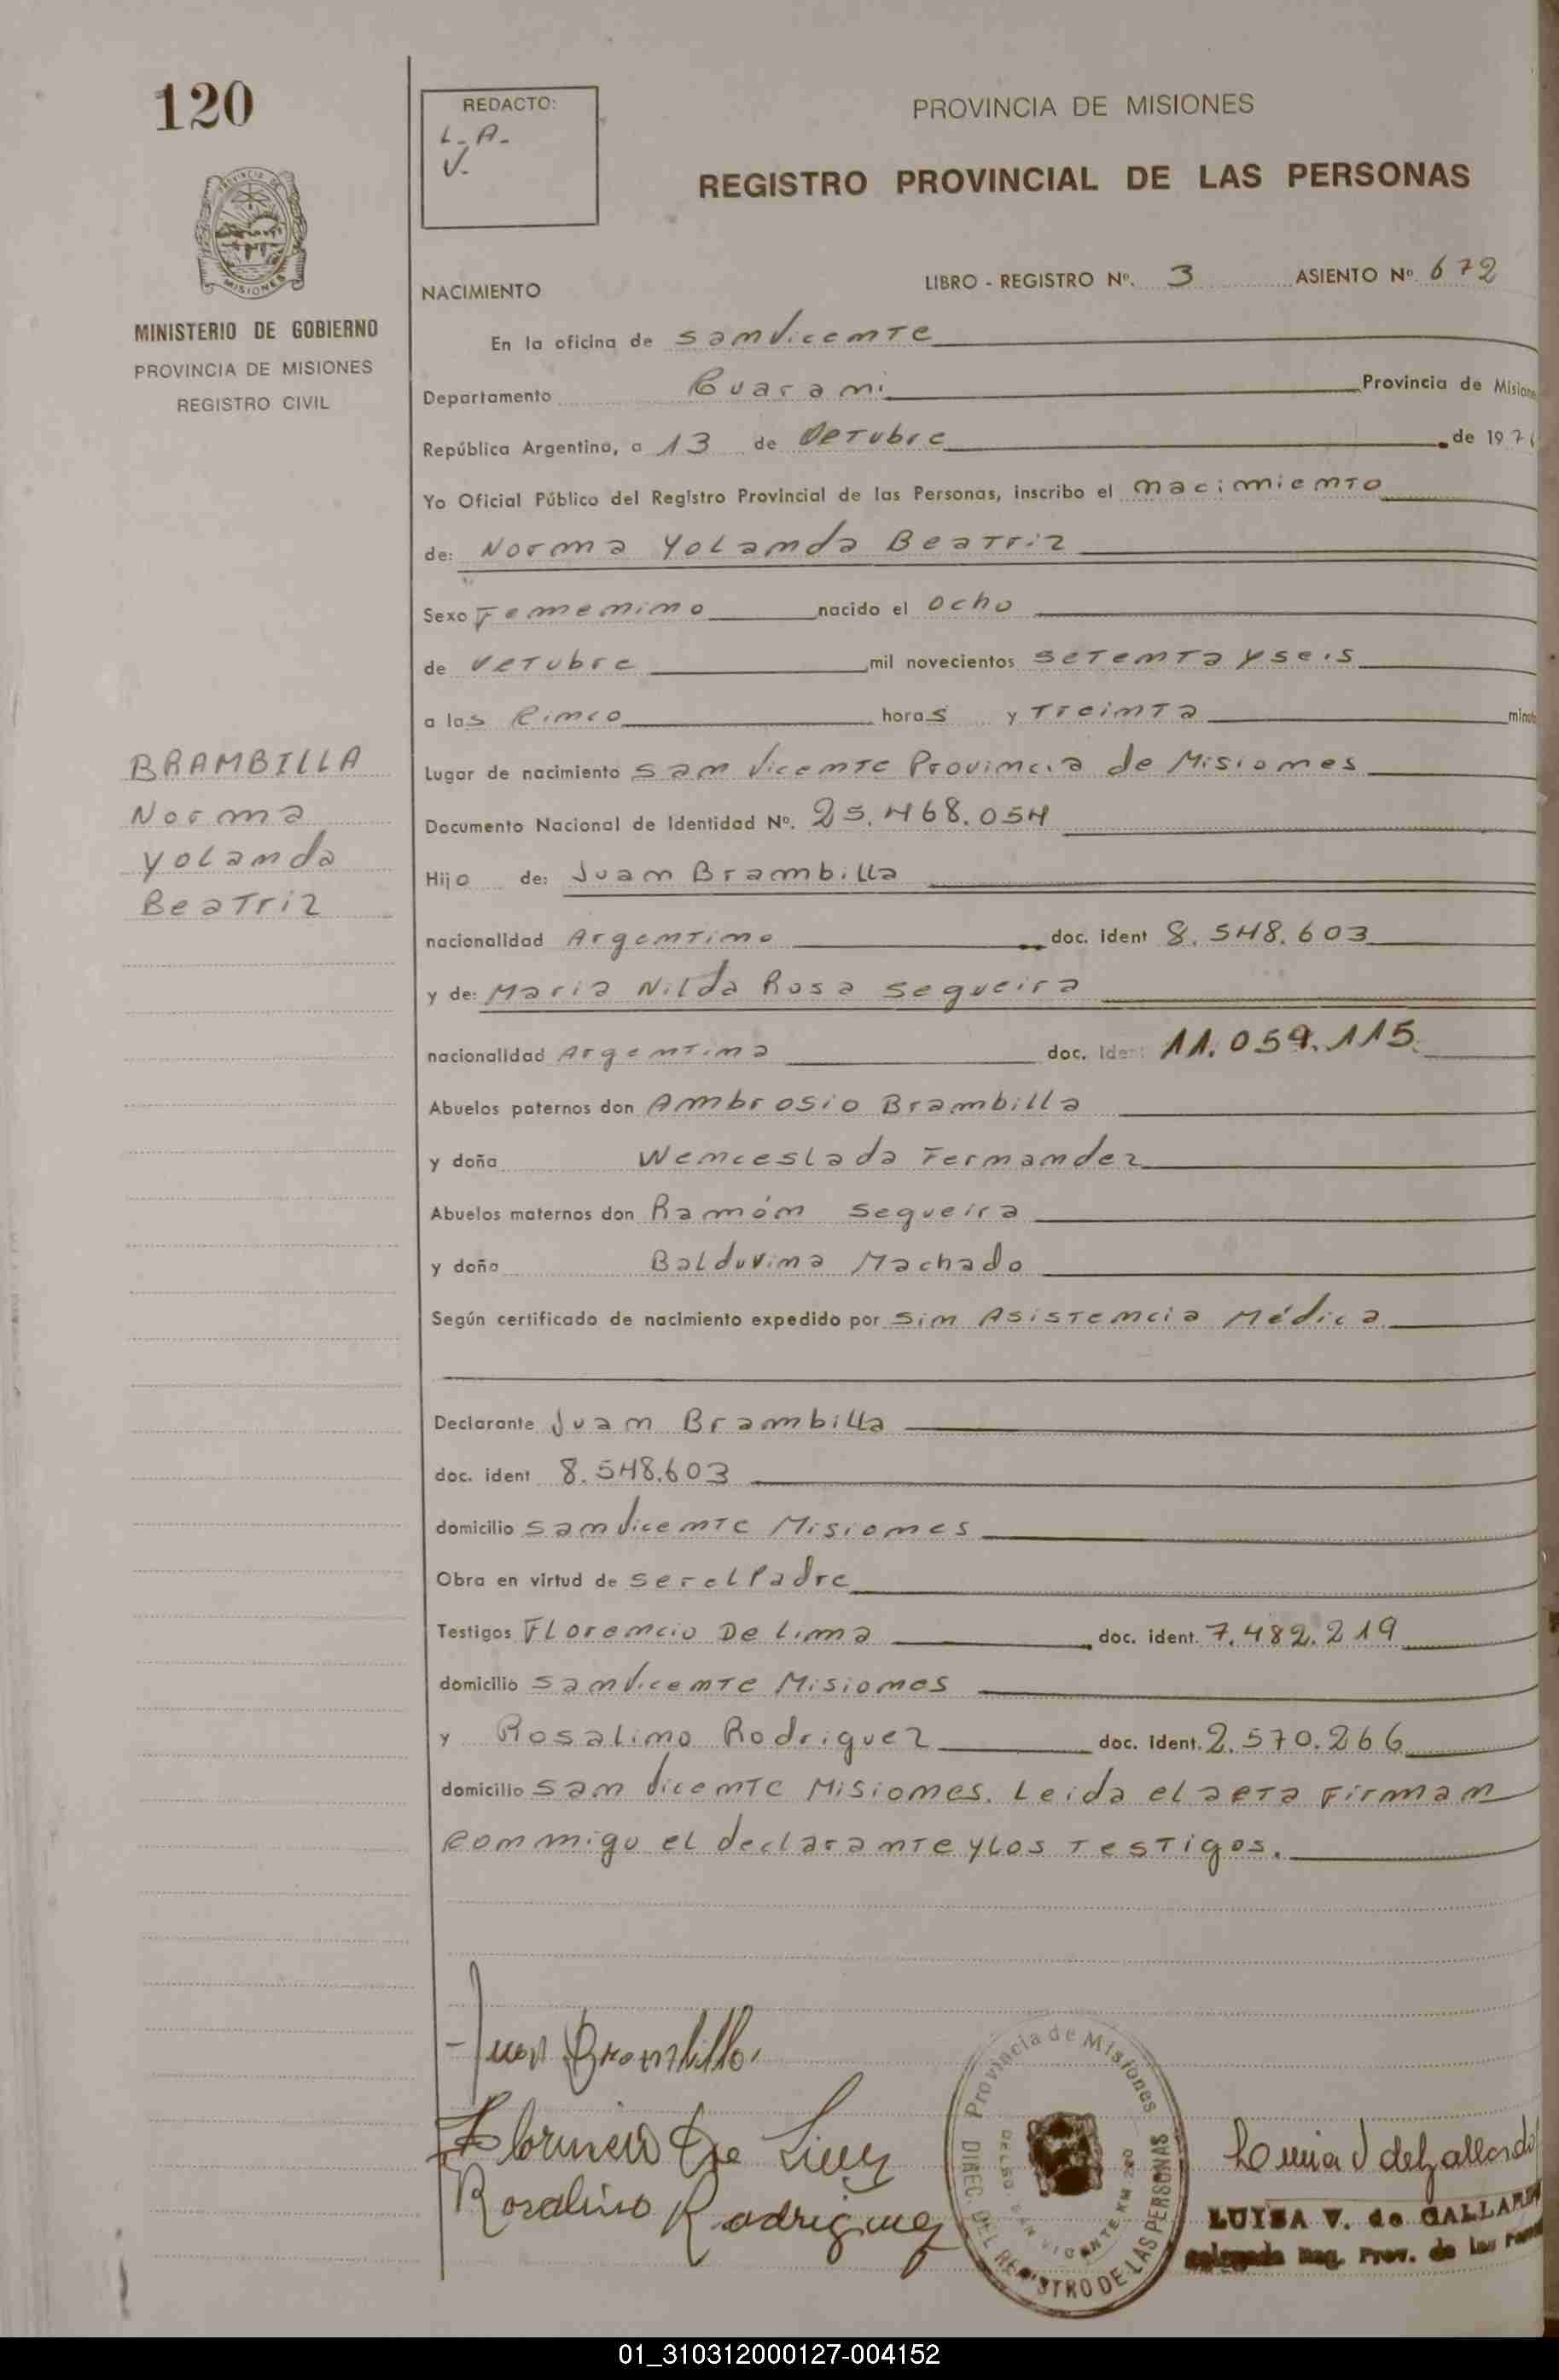 120
REDACTO:
L. A.
V.
PROVINCIA DE MISIONES
REGISTRO PROVINCIAL DE LAS PERSONAS
MISIONES
MINISTERIO DE GOBIERNO
PROVINCIA DE MISIONES
REGISTRO CIVIL
NACIMIENTO
LIBRO - REGISTRO Nº. 3 ASIENTO Nº 672
En la oficina de San Vicente
Departamento Guarani Provincia de Misione
República Argentina, a 13 de Octubre de 197
Yo Oficial Público del Registro Provincial de las Personas, inscribo el nacimiento
de: Norma Yolanda Beatriz
Sexo Femenino nacido el ocho
de octubre mil novecientos setenta y seis
a las cinco horas y treinta minut
Lugar de nacimiento San Vicente Provincia de Misiones
Documento Nacional de Identidad Nº. 25.468.054
Hijo de: Juan Brambilla
nacionalidad Argentino doc. ident 8.548.603
y de: Maria Nilda Rosa Segueira
nacionalidad Argentina doc. Ident 11.059.115.
Abuelos paternos don Ambrosio Brambilla
y doña Wenceslada Fernandez
Abuelos maternos don Ramón Segueira
y doña Balduvina Machado
Según certificado de nacimiento expedido por Sin Asistencia Médica.
Declarante Juan Brambilla
doc. ident 8.548.603
domicilio San Vicente Misiones
Obra en virtud de ser el Padre
Testigos Florencio De Lima doc. ident. 7.482.219
domicilio San Vicente Misiones
y Rosalino Rodriguez doc. ident. 2.570.266
domicilio San Vicente Misiones. Leida el acta Firman
conmigo el declarante y los testigos.
BRAMBILLA
Norma
Yolanda
Beatriz
Juan Brambilla.
Florencio De Lima
Rosalino Rodriguez
Provincia de Misiones
DIREC. DEL REGISTRO DE LAS PERSONAS
DELEG. SAN VICENTE KM 280
LUISA V. de GALLARD
Delegada Reg. Prov. de las Pers
01_310312000127-004152